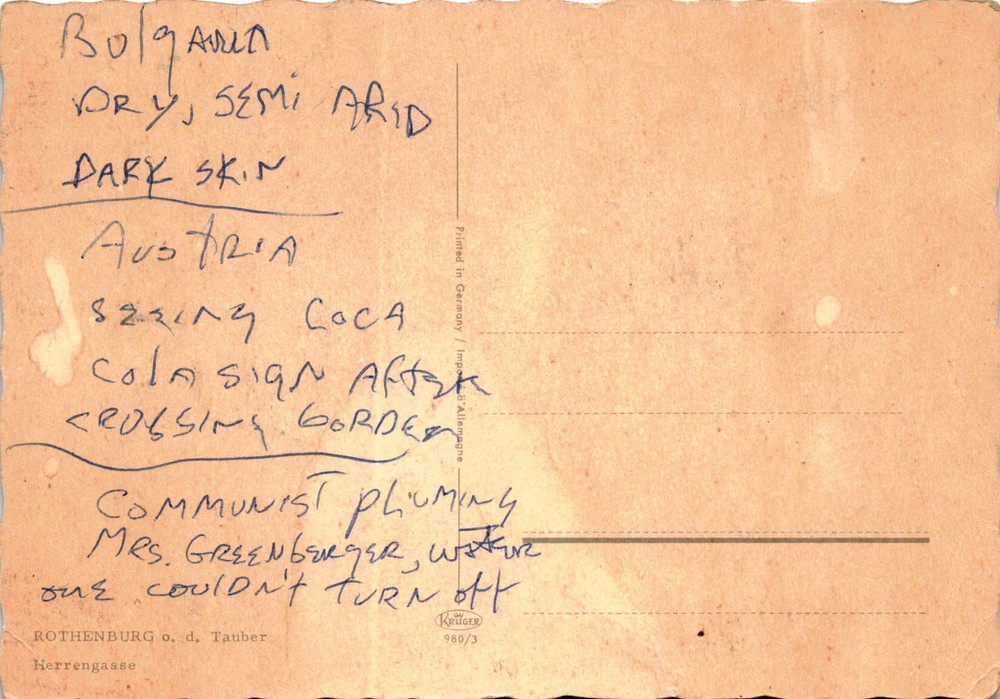 Bulgaria
DRY, SEMI ARID
DARK SKIN
AUSTRIA
SEEING COCA
COLA SIGN AFTER
CROSSING BORDER
COMMUNIST PLUMING
MRS. GREENBERGER, WATER
ONE COULDN'T TURN Off
Printed in Germany / Imp d'Allemagne
KRÜGER
980/3
ROTHENBURG o. d. Tauber
Herrengasse